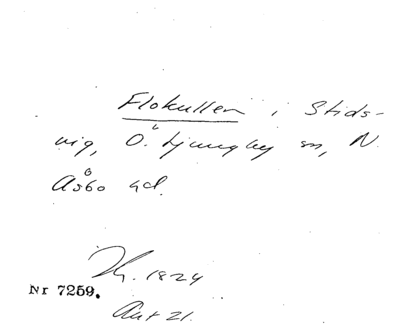 Flokullen i Stids-
vig, Ö. Ljungby sn, N.
Åsbo hd.
1824
Nr 7259.
Aut 21.